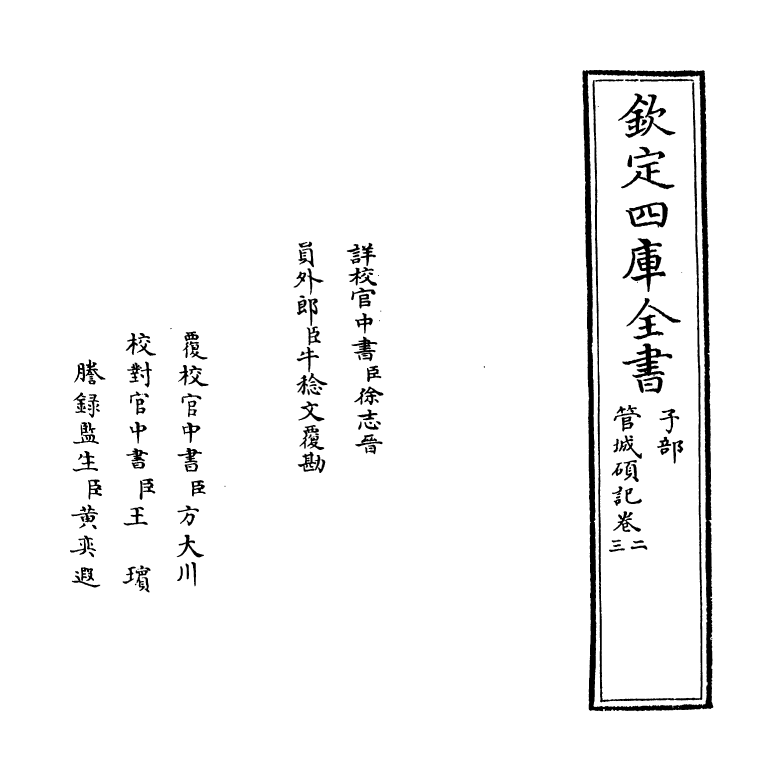 欽定四庫全書
子部
管城碩記卷二三
詳校官中書臣徐志晉
員外郎臣牛稔文覆勘
覆校官中書臣方大川
校對官中書臣王璸
謄錄監生臣黃奕遐